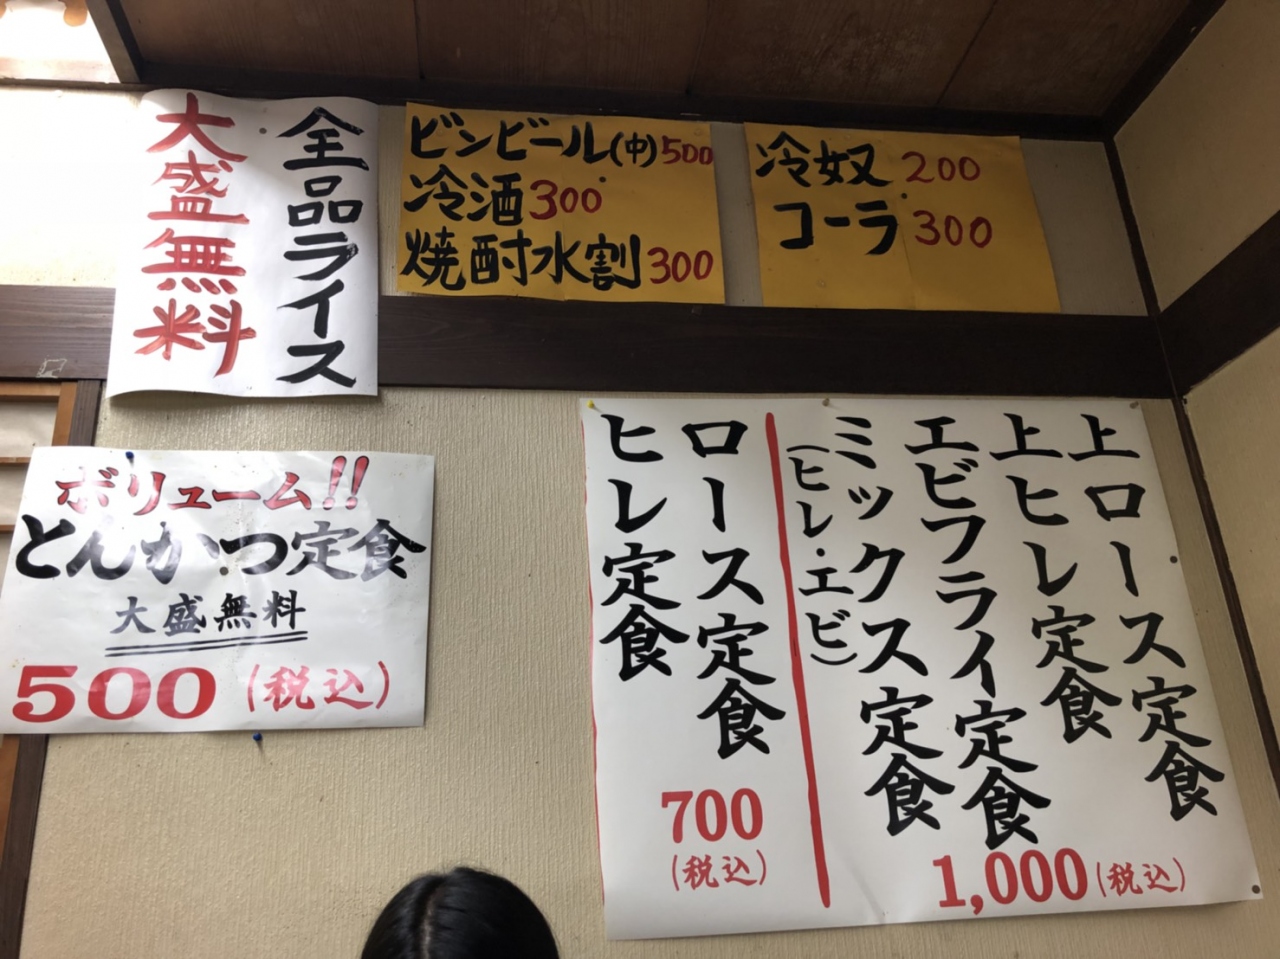 全品ライス
大盛無料
ビンビール(中)500
冷酒300
焼酎水割300
冷奴 200
コーラ 300
ボリューム!!
とんかつ定食
大盛無料
500(税込)
上ロース定食
上ヒレ定食
エビフライ定食
ミックス定食
(ヒレ・エビ)
1,000(税込)
ロース定食
ヒレ定食
700
(税込)